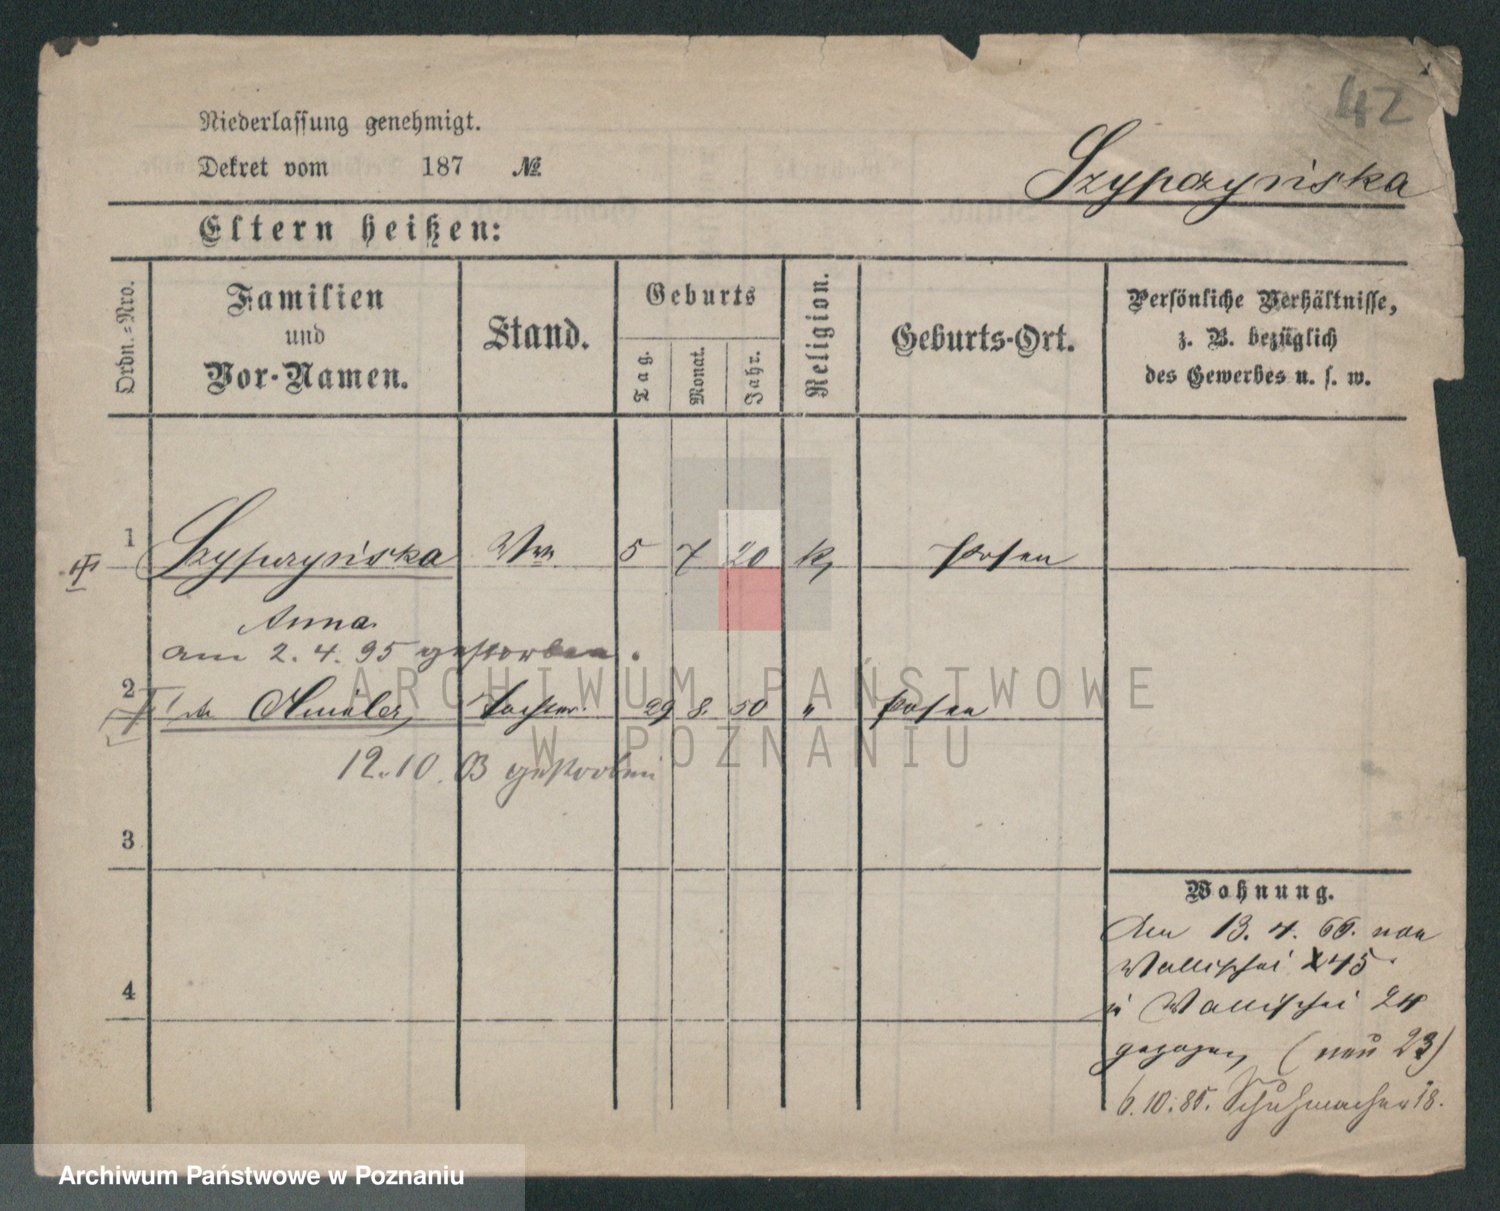 42
Niederlassung genehmigt.
Dekret vom 187 №
Szypczyńska
Eltern heißen:
Ordn.=Nro.
Familien
und
Vor-Namen.
Stand.
Geburts
Tag.
Monat.
Jahr.
Religion.
Geburts-Ort.
Persönliche Verhältnisse,
z. B. bezüglich
des Gewerbes u. s. w.
1 Szypczyńska Ww. 5 7 20 k. Posen
Anna
am 2. 4. 95 gestorben.
2 Tochter 29 8. 50 " Posen
12.10. 03 gestorben
3
4
Wohnung.
Am 13. 4. 66. von
Wallischei 45
n Wallischei 24
gezogen (neu 23)
6.10.85. Schuhmacherstr 18.
ARCHIWUM PAŃSTWOWE
W POZNANIU
Archiwum Państwowe w Poznaniu